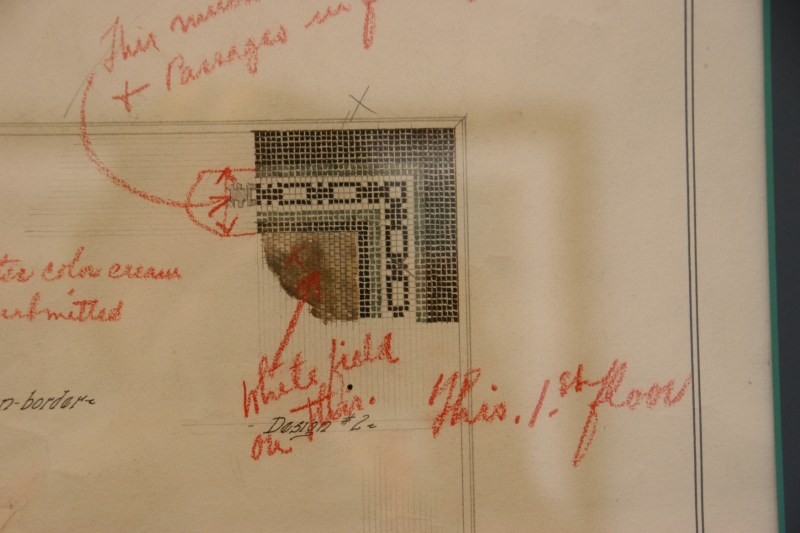 This
+ Passages in
color cream
submitted
n-border
White field
on this.
Design #2
This. 1.st floor